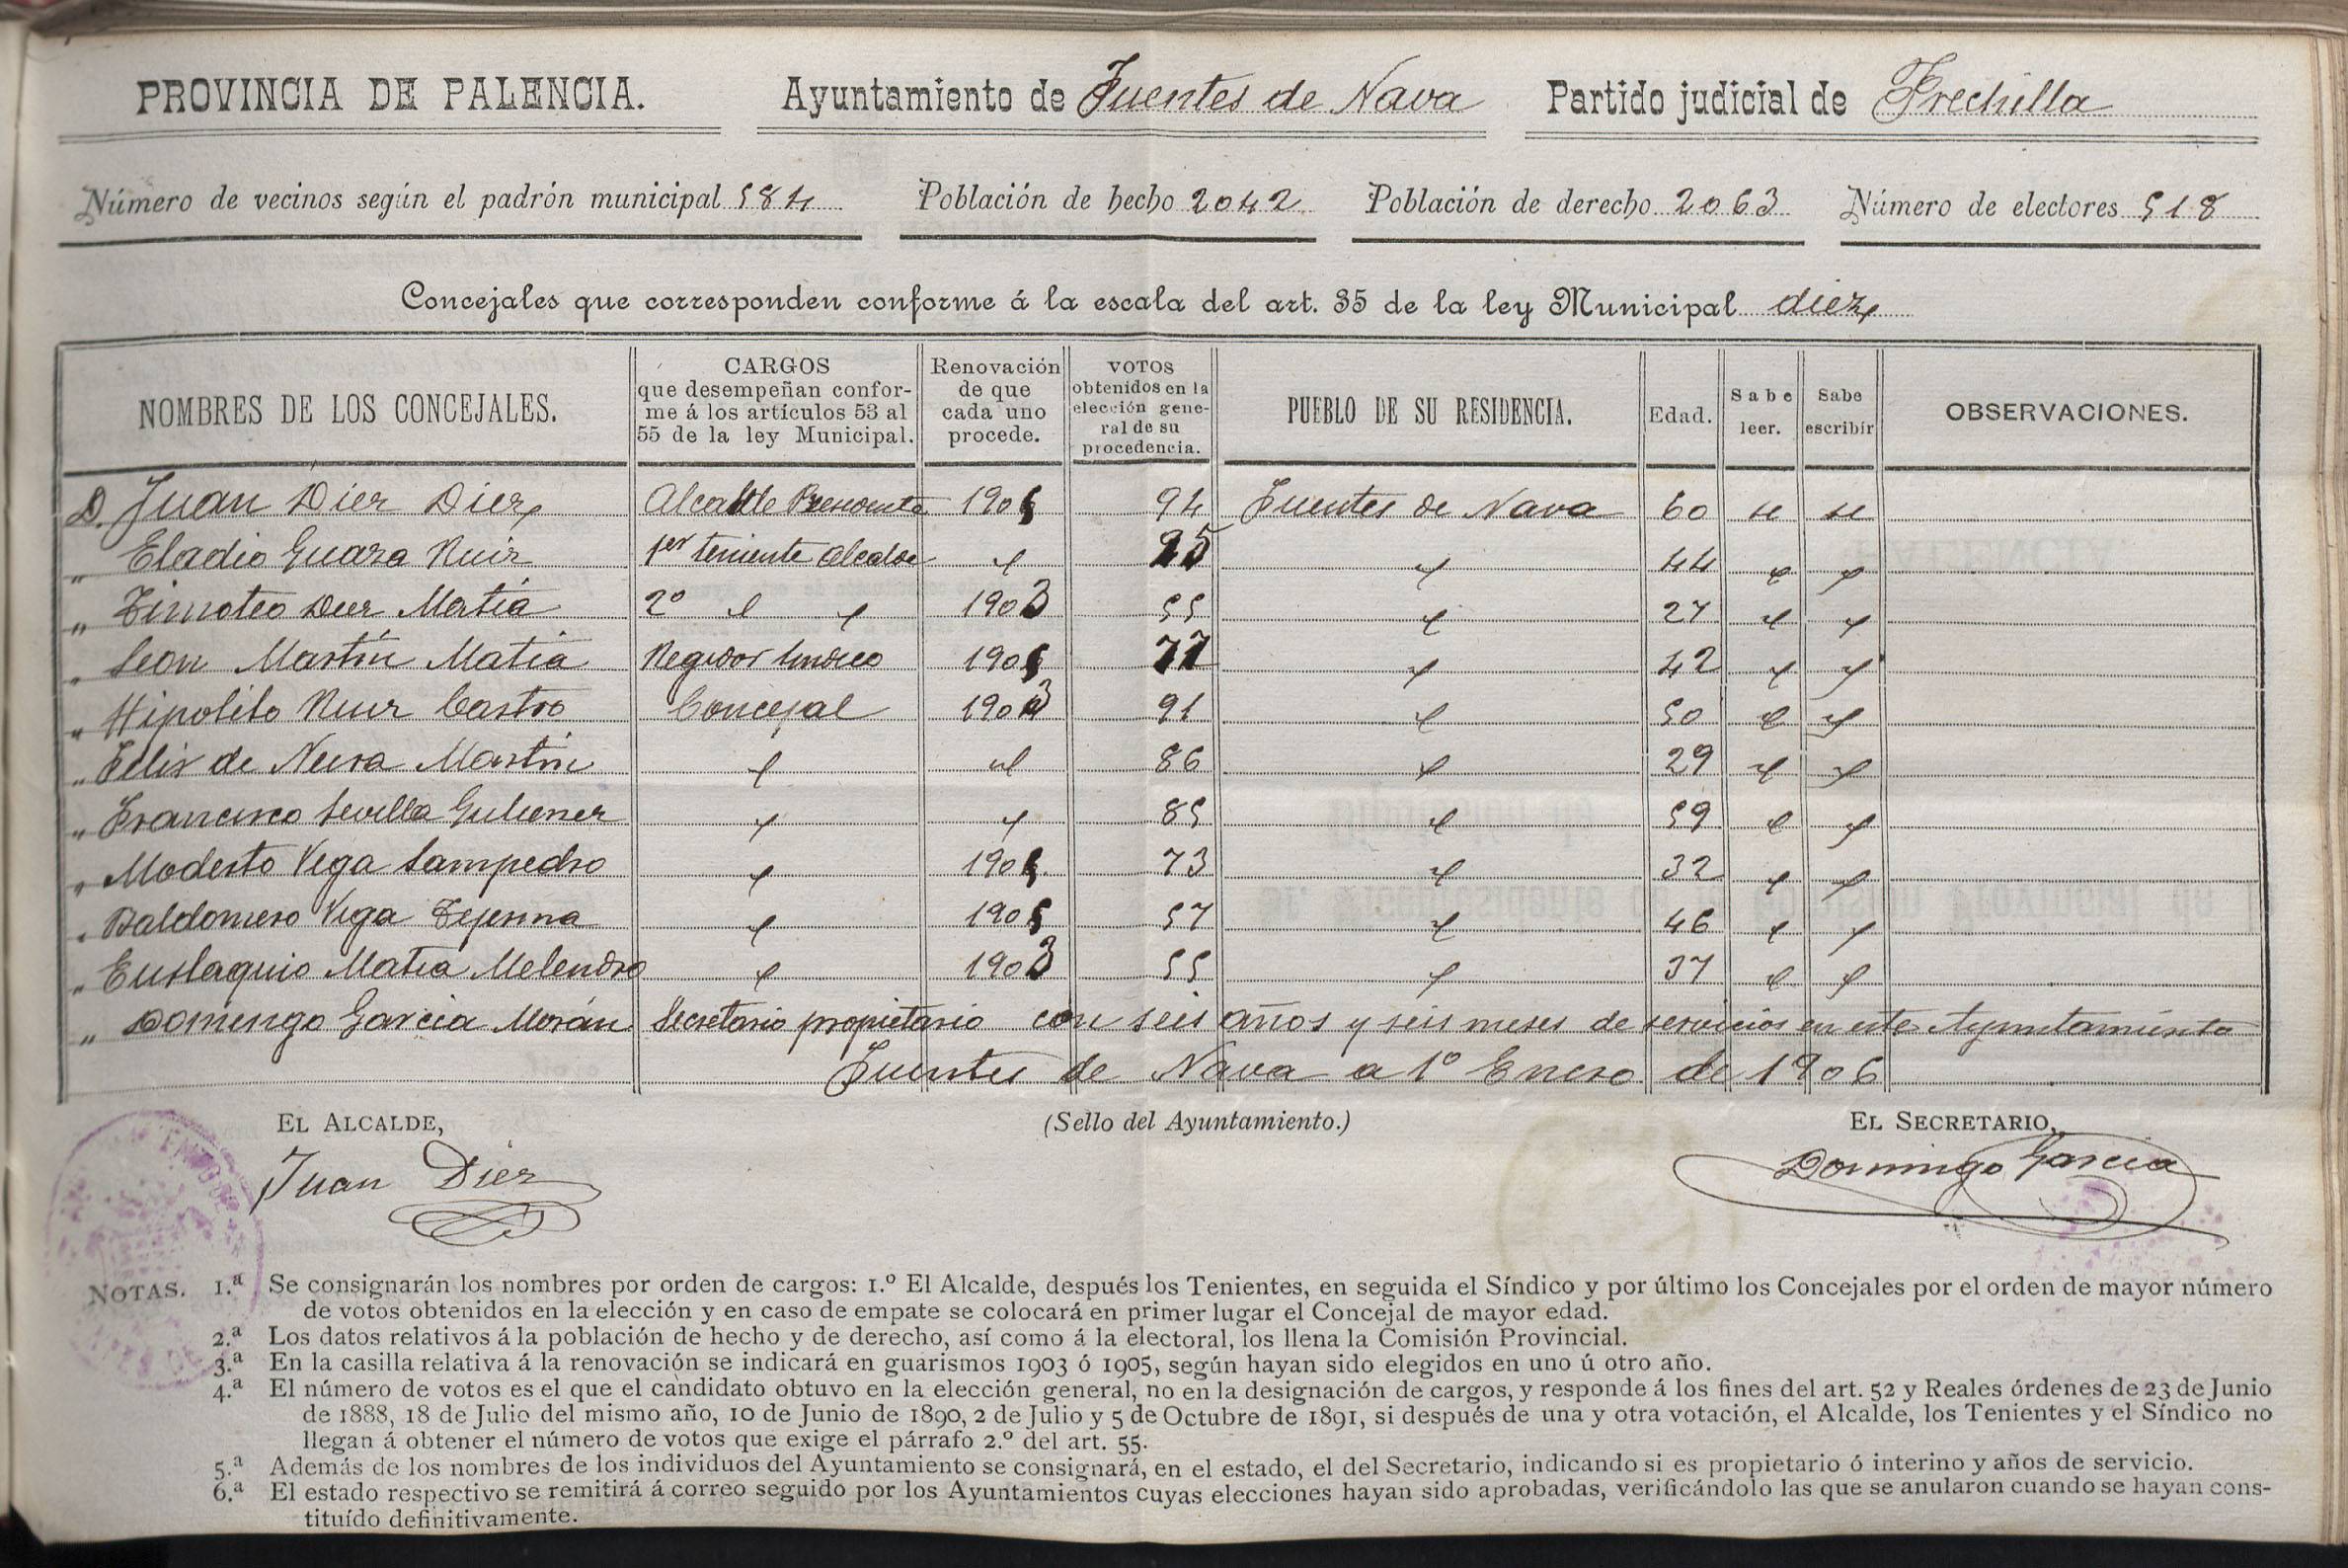 PROVINCIA DE PALENCIA. Ayuntamiento de Fuentes de Nava Partido judicial de Frechilla
Número de vecinos según el padrón municipal 584 Población de hecho 2042 Población de derecho 2063 Número de electores 518
Concejales que corresponden conforme á la escala del art. 35 de la ley Municipal diez
NOMBRES DE LOS CONCEJALES. CARGOS que desempeñan conforme á los artículos 53 al 55 de la ley Municipal. Renovación de que cada uno procede. VOTOS obtenidos en la elección general de su procedencia. PUEBLO DE SU RESIDENCIA. Edad. Sabe leer. Sabe escribir OBSERVACIONES.
D. Juan Diez Diez Alcalde Presidente 1905 94 Fuentes de Nava 60 si si
„ Eladio Guaza Ruiz 1er teniente Alcalde " 95 " 44 " "
„ Timoteo Diez Matia 2º " " 1903 55 " 27 " "
„ Leon Martin Matia Regidor Sindico 1905 77 " 42 " "
„ Hipolito Ruiz Castro Concejal 1903 91 " 50 " "
„ Felix de Neira Martin " " 86 " 29 " "
„ Francisco Sevilla " " 85 " 59 " "
„ Modesto Vega Sampedro " 1905 73 " 32 " "
„ Baldomero Vega Tejerina " 1905 57 " 46 " "
„ Eustaquio Matia Melendro " 1903 55 " 37 " "
„ Domingo Garcia Morán Secretario propietario con seis años y seis meses de servicios en este Ayuntamiento
Fuentes de Nava a 1º Enero de 1906
EL ALCALDE, (Sello del Ayuntamiento.) EL SECRETARIO,
Juan Diez Domingo Garcia
NOTAS. 1.ª Se consignarán los nombres por orden de cargos: 1.º El Alcalde, después los Tenientes, en seguida el Síndico y por último los Concejales por el orden de mayor número
de votos obtenidos en la elección y en caso de empate se colocará en primer lugar el Concejal de mayor edad.
2.ª Los datos relativos á la población de hecho y de derecho, así como á la electoral, los llena la Comisión Provincial.
3.ª En la casilla relativa á la renovación se indicará en guarismos 1903 ó 1905, según hayan sido elegidos en uno ú otro año.
4.ª El número de votos es el que el candidato obtuvo en la elección general, no en la designación de cargos, y responde á los fines del art. 52 y Reales órdenes de 23 de Junio
de 1888, 18 de Julio del mismo año, 10 de Junio de 1890, 2 de Julio y 5 de Octubre de 1891, si después de una y otra votación, el Alcalde, los Tenientes y el Síndico no
llegan á obtener el número de votos que exige el párrafo 2.º del art. 55.
5.ª Además de los nombres de los individuos del Ayuntamiento se consignará, en el estado, el del Secretario, indicando si es propietario ó interino y años de servicio.
6.ª El estado respectivo se remitirá á correo seguido por los Ayuntamientos cuyas elecciones hayan sido aprobadas, verificándolo las que se anularon cuando se hayan cons-
tituído definitivamente.